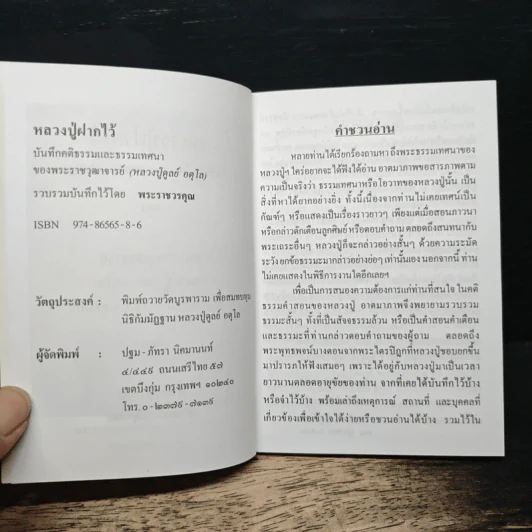 หลวงปู่ฝากไว้
บันทึกคติธรรมและธรรมเทศนา
ของพระราชวุฒาจารย์ (หลวงปู่ดูลย์ อตุโล)
รวบรวมบันทึกไว้โดย พระราชวรคุณ
ISBN 974-86565-8-6
วัตถุประสงค์ : พิมพ์ถวายวัดบูรพาราม เพื่อสมทบทุน
นิธิกัมมัฏฐาน หลวงปู่ดูลย์ อตุโล
ผู้จัดพิมพ์ : ปฐม-ภัทรา นิคมานนท์
๔/๔๔๙ ถนนเสรีไทย ๕๗
เขตบึงกุ่ม กรุงเทพฯ ๑๐๒๔๐
โทร. ๐-๒๓๗๙-๗๑๓๙
คำชวนอ่าน
หลายท่านได้เรียกร้องถามหา ถึงพระธรรมเทศนาของ
หลวงปู่ฯ ใคร่อยากจะได้ฟังได้อ่าน อาตมาภาพขอสารภาพตาม
ความเป็นจริงว่า ธรรมเทศนาหรือโอวาทของหลวงปู่นั้น เป็น
สิ่งที่หาได้ยากอย่างยิ่ง ทั้งนี้เนื่องจากท่านไม่เคยเทศน์เป็น
กัณฑ์ๆ หรือแสดงเป็นเรื่องราวยาวๆ เพียงแต่เมื่อสอนภาวนา
หรือกล่าวตักเตือนลูกศิษย์ หรือตอบคำถาม ตลอดถึงสนทนากับ
พระเถระอื่นๆ หลวงปู่ก็จะกล่าวอย่างสั้นๆ ด้วยความระมัด
ระวัง ยกข้อธรรมะมากล่าวอย่างย่อๆ เท่านั้นเอง นอกจากนี้ ท่าน
ไม่เคยแสดงในพิธีการงานใดอีกเลยฯ
เพื่อเป็นการสนองความต้องการแก่ท่านที่สนใจ ในคติ
ธรรมคำสอนของหลวงปู่ อาตมาภาพจึงพยายามรวบรวม
ธรรมะสั้นๆ ทั้งที่เป็นสัจจธรรมล้วน หรือเป็นคำสอนคำเตือน
และธรรมะที่ท่านกล่าวตอบคำถามของผู้ถาม ตลอดถึง
พระพุทธพจน์บางตอนจากพระไตรปิฎกที่หลวงปู่ชอบยกขึ้น
มาปรารภให้ฟังเสมอๆ เพราะได้อยู่กับหลวงปู่มาเป็นเวลา
ยาวนานตลอดอายุขัยของท่าน จากที่เคยได้บันทึกไว้บ้าง
หรือจำไว้บ้าง พร้อมเล่าถึงเหตุการณ์ สถานที่ และบุคคลที่
เกี่ยวข้องเพื่อเข้าใจได้ง่ายหรือชวนอ่านได้บ้าง รวมไว้ใน